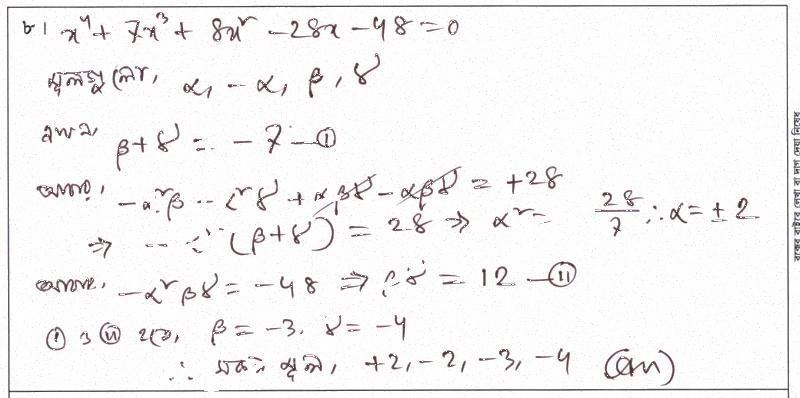 ৮। x⁴ + 7x³ + 8x² - 28x - 48 = 0
মূলগুলো, α, -α, β, γ
এখন, β+γ = -7 —(i)
আবার, -α²β - α²γ + αβγ - αβγ = +28
⇒ -α²(β+γ) = 28 ⇒ α² = 28/7 ∴ α = ±2
আবার, -α²βγ = -48 ⇒ βγ = 12 —(ii)
(i) ও (ii) হতে, β = -3. γ = -4
∴ সকল মূল, +2, -2, -3, -4 (Ans)
বক্সের বাইরে লেখা বা দাগ দেয়া নিষেধ